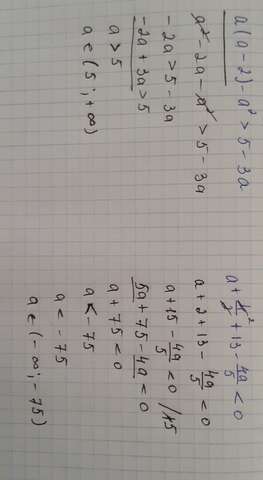 a(a-2)-a² > 5-3a
a²-2a-a² > 5-3a
-2a > 5-3a
-2a+3a > 5
a > 5
a ∈ (5; +∞)
+ 13 - 4a/5 < 0
a + 2 + 13 - 4a/5 < 0
a + 15 - 4a/5 < 0 /·5
5a + 75 - 4a < 0
a + 75 < 0
a < -75
a < -75
a ∈ (-∞; -75)